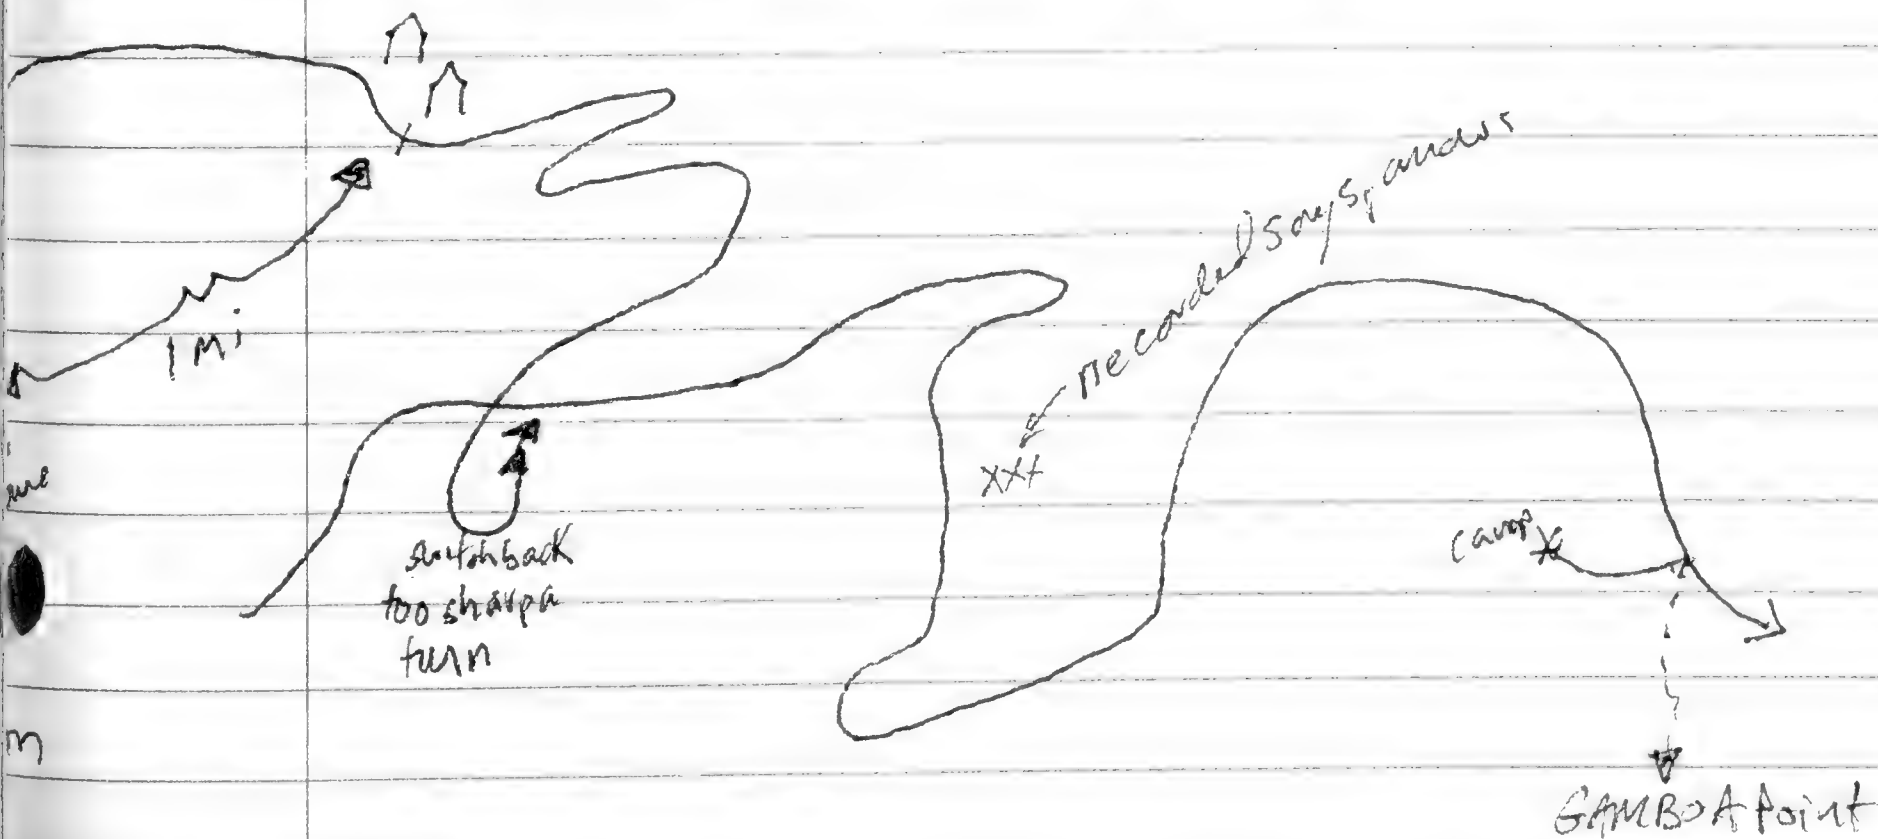 1 Mi
recorded says, and us
xxx
switchback
too sharp a
turn
camp
GAMBOA Point
m